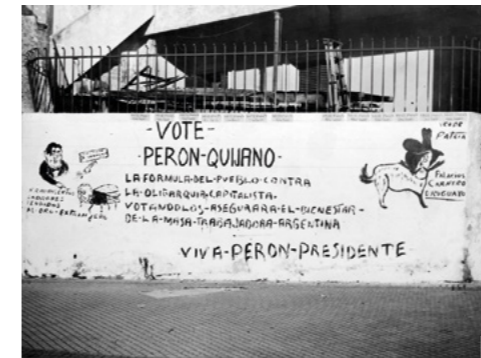 -VOTE-
-PERON-QUIJANO-
LA FORMULA-DEL-PUEBLO-CONTRA
LA-OLIGARQUIA-CAPITALISTA-
VOTANDOLOS-ASEGURARA-EL-BIENESTAR-
DE-LA-MASA-TRABAJADORA-ARGENTINA
VIVA-PERON-PRESIDENTE
Patria
Palacios